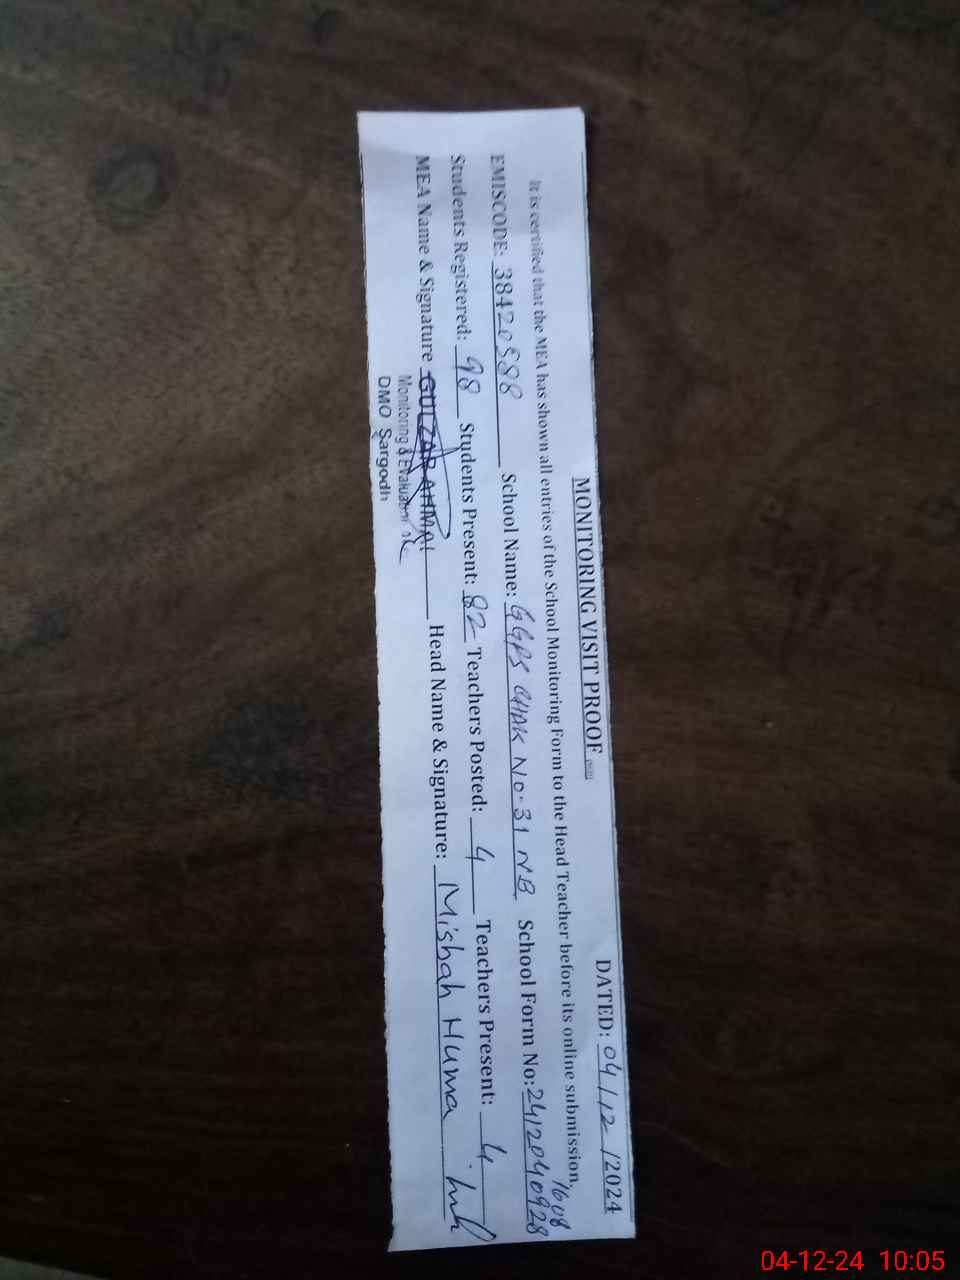 MONITORING VISIT PROOF DATED: 04/12/2024
It is certified that the MEA has shown all entries of the School Monitoring Form to the Head Teacher before its online submission.
1608
EMISCODE: 38420588 School Name: GGPS CHAK No. 31 NB School Form No: 2412040928
Students Registered: 98 Students Present: 82 Teachers Posted: 4 Teachers Present: 4
MEA Name & Signature GULZAR AHMA Head Name & Signature: Misbah Huma
Monitoring & Evaluation
DMO Sargodh
04-12-24 10:05